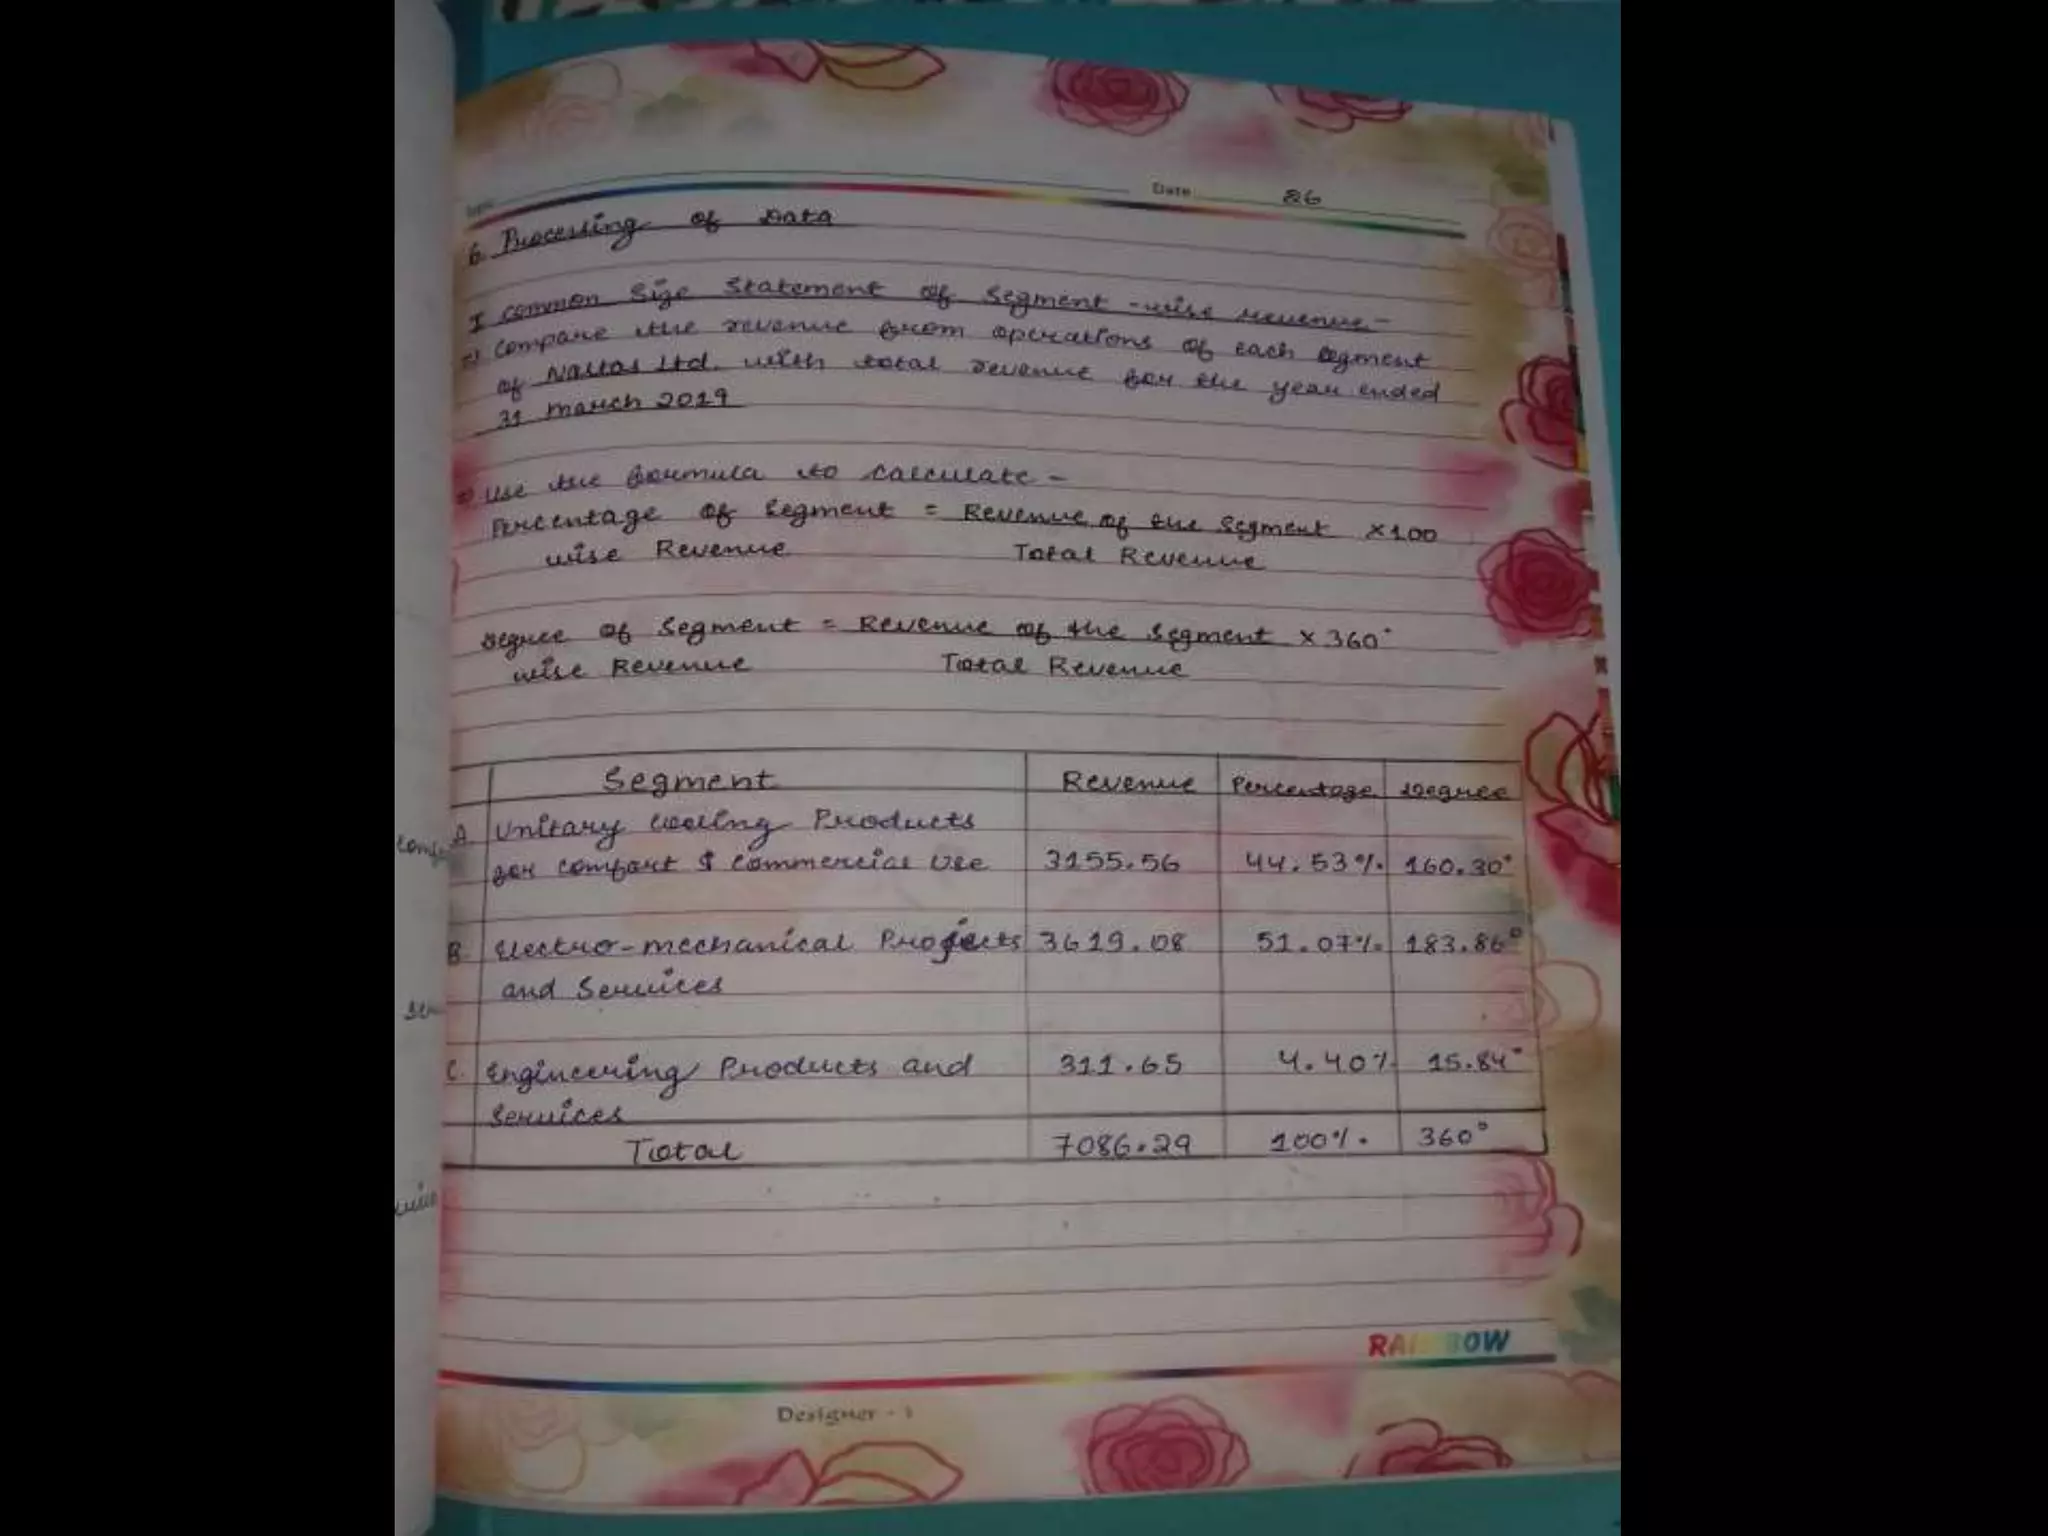 Date 86
6. Processing of Data
I common size statement of segment-wise revenue-
=> compare the revenue from operations of each segment
of Ltd. with total revenue for the year ended
31 march 2019
=> Use the formula to calculate -
Percentage of segment = Revenue of the segment ×100
wise Revenue Total Revenue
Degree of segment = Revenue of the segment × 360°
wise Revenue Total Revenue
Segment Revenue Percentage Degree
A. Unitary cooling Products
for comfort & commercial use 3155.56 44.53% 160.30°
B. Electro-mechanical Projects 3619.08 51.07% 183.86°
and Services
C. Engineering Products and 311.65 4.40% 15.84°
services
Total 7086.29 100%. 360°
RAINBOW
Designer - 1